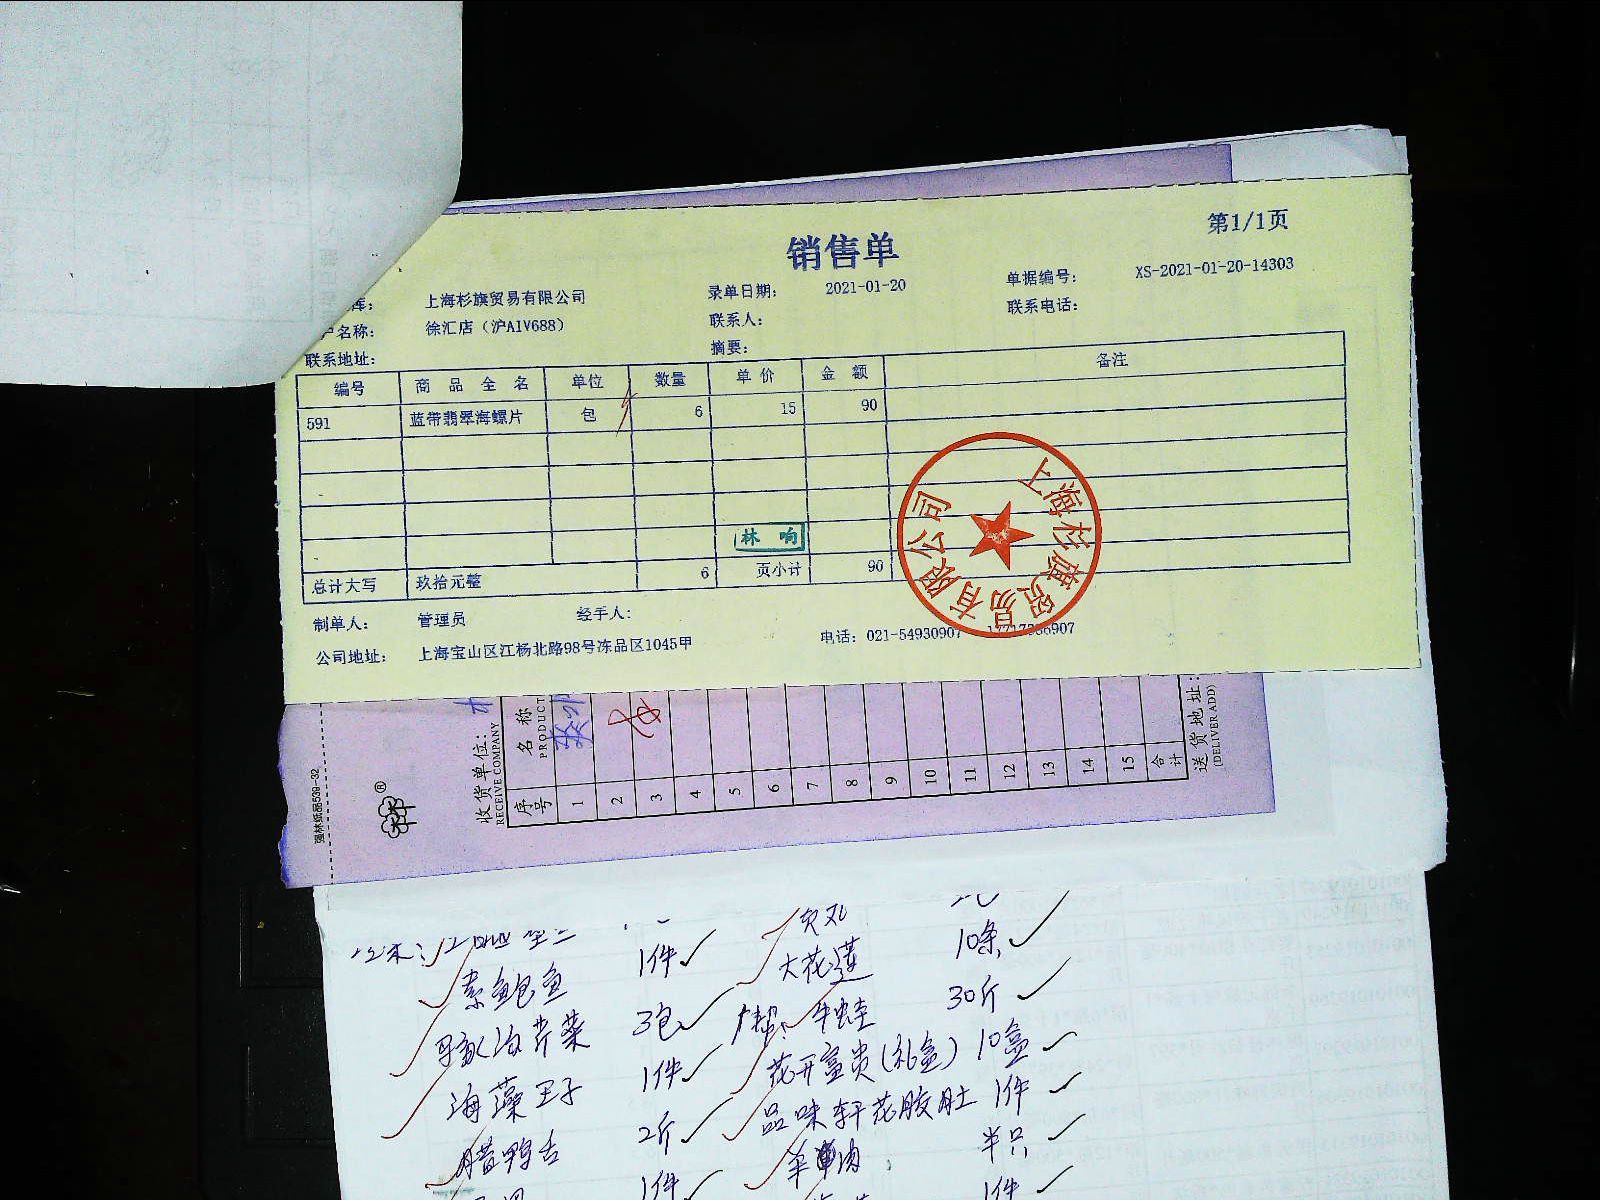 第1/1页
销售单
库: 上海杉旗贸易有限公司 录单日期: 2021-01-20 单据编号: XS-2021-01-20-14303
户名称: 徐汇店（沪A1V688） 联系人: 联系电话:
联系地址: 摘要:
编号 商品全名 单位 数量 单价 金额 备注
591 蓝带翡翠海螺片 包 6 15 90
林响
总计大写 玖拾元整 6 页小计 90
上海杉旗贸易有限公司
制单人: 管理员 经手人:
公司地址: 上海宝山区江杨北路98号冻品区1045甲 电话: 021-54930907
强林纸品539-32
收货单位:
RECEIVE COMPANY
序号 名称
PRODUCT
1
2
3
4
5
6
7
8
9
10
11
12
13
14
15
合计
送货地址:
(DELIVER ADD)
素鲍鱼 1件 大花莲 10条
芹菜 3包 牛蛙 30斤
海藻王子 1件 花开富贵(礼盒) 10盒
腊鸭舌 2斤 品味轩花胶肚 1件
1件 羊肉 半只
1件